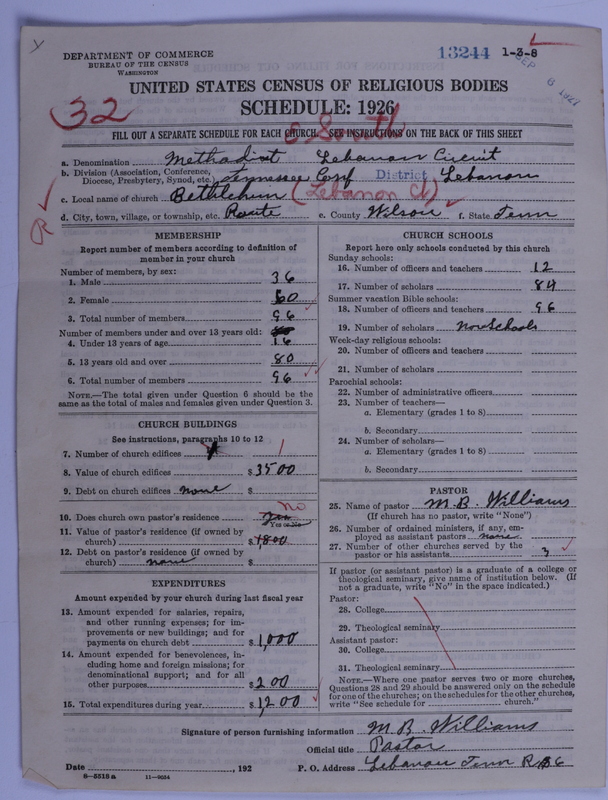 DEPARTMENT OF COMMERCE
BUREAU OF THE CENSUS
WASHINGTON
13244 1-3-8
SEP 6 1927
UNITED STATES CENSUS OF RELIGIOUS BODIES
SCHEDULE: 1926
32
FILL OUT A SEPARATE SCHEDULE FOR EACH CHURCH. SEE INSTRUCTIONS ON THE BACK OF THIS SHEET
South
a. Denomination Methodist Lebanon Circuit
b. Division (Association, Conference, Diocese, Presbytery, Synod, etc.) Tennessee Conf District Lebanon
c. Local name of church Bethlehem (Lebanon Ct)
d. City, town, village, or township, etc. Route e. County Wilson f. State Tenn
R
MEMBERSHIP
Report number of members according to definition of
member in your church
Number of members, by sex:
1. Male 36
2. Female 60
3. Total number of members 96
Number of members under and over 13 years old:
4. Under 13 years of age 16
5. 13 years old and over 80
6. Total number of members 96
NOTE.—The total given under Question 6 should be the
same as the total of males and females given under Question 3.
CHURCH BUILDINGS
See instructions, paragraphs 10 to 12
7. Number of church edifices 1
8. Value of church edifices $3500
9. Debt on church edifices none $
10. Does church own pastor's residence No
Yes or No
11. Value of pastor's residence (if owned by
church) $1800
12. Debt on pastor's residence (if owned by
church) none $
EXPENDITURES
Amount expended by your church during last fiscal year
13. Amount expended for salaries, repairs,
and other running expenses; for im-
provements or new buildings; and for
payments on church debt $1,000
14. Amount expended for benevolences, in-
cluding home and foreign missions; for
denominational support; and for all
other purposes $200
15. Total expenditures during year $1200
CHURCH SCHOOLS
Report here only schools conducted by this church
Sunday schools:
16. Number of officers and teachers 12
17. Number of scholars 84
Summer vacation Bible schools:
18. Number of officers and teachers 96
19. Number of scholars no Schools
Week-day religious schools:
20. Number of officers and teachers
21. Number of scholars
Parochial schools:
22. Number of administrative officers
23. Number of teachers—
a. Elementary (grades 1 to 8)
b. Secondary
24. Number of scholars—
a. Elementary (grades 1 to 8)
b. Secondary
PASTOR
25. Name of pastor M. B. Williams
(If church has no pastor, write "None")
26. Number of ordained ministers, if any, em-
ployed as assistant pastors none
27. Number of other churches served by the
pastor or his assistants 3
If pastor (or assistant pastor) is a graduate of a college or
theological seminary, give name of institution below. (If
not a graduate, write "No" in the space indicated.)
Pastor:
28. College
29. Theological seminary
Assistant pastor:
30. College
31. Theological seminary
NOTE.—Where one pastor serves two or more churches,
Questions 28 and 29 should be answered only on the schedule
for one of the churches; on the schedules for the other churches,
write "See schedule for church."
Signature of person furnishing information M. B. Williams
Official title Pastor
Date , 192 P. O. Address Lebanon Tenn R 6
8-5518a 11-9034